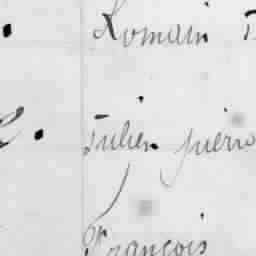 Romain
Julien pierro
François